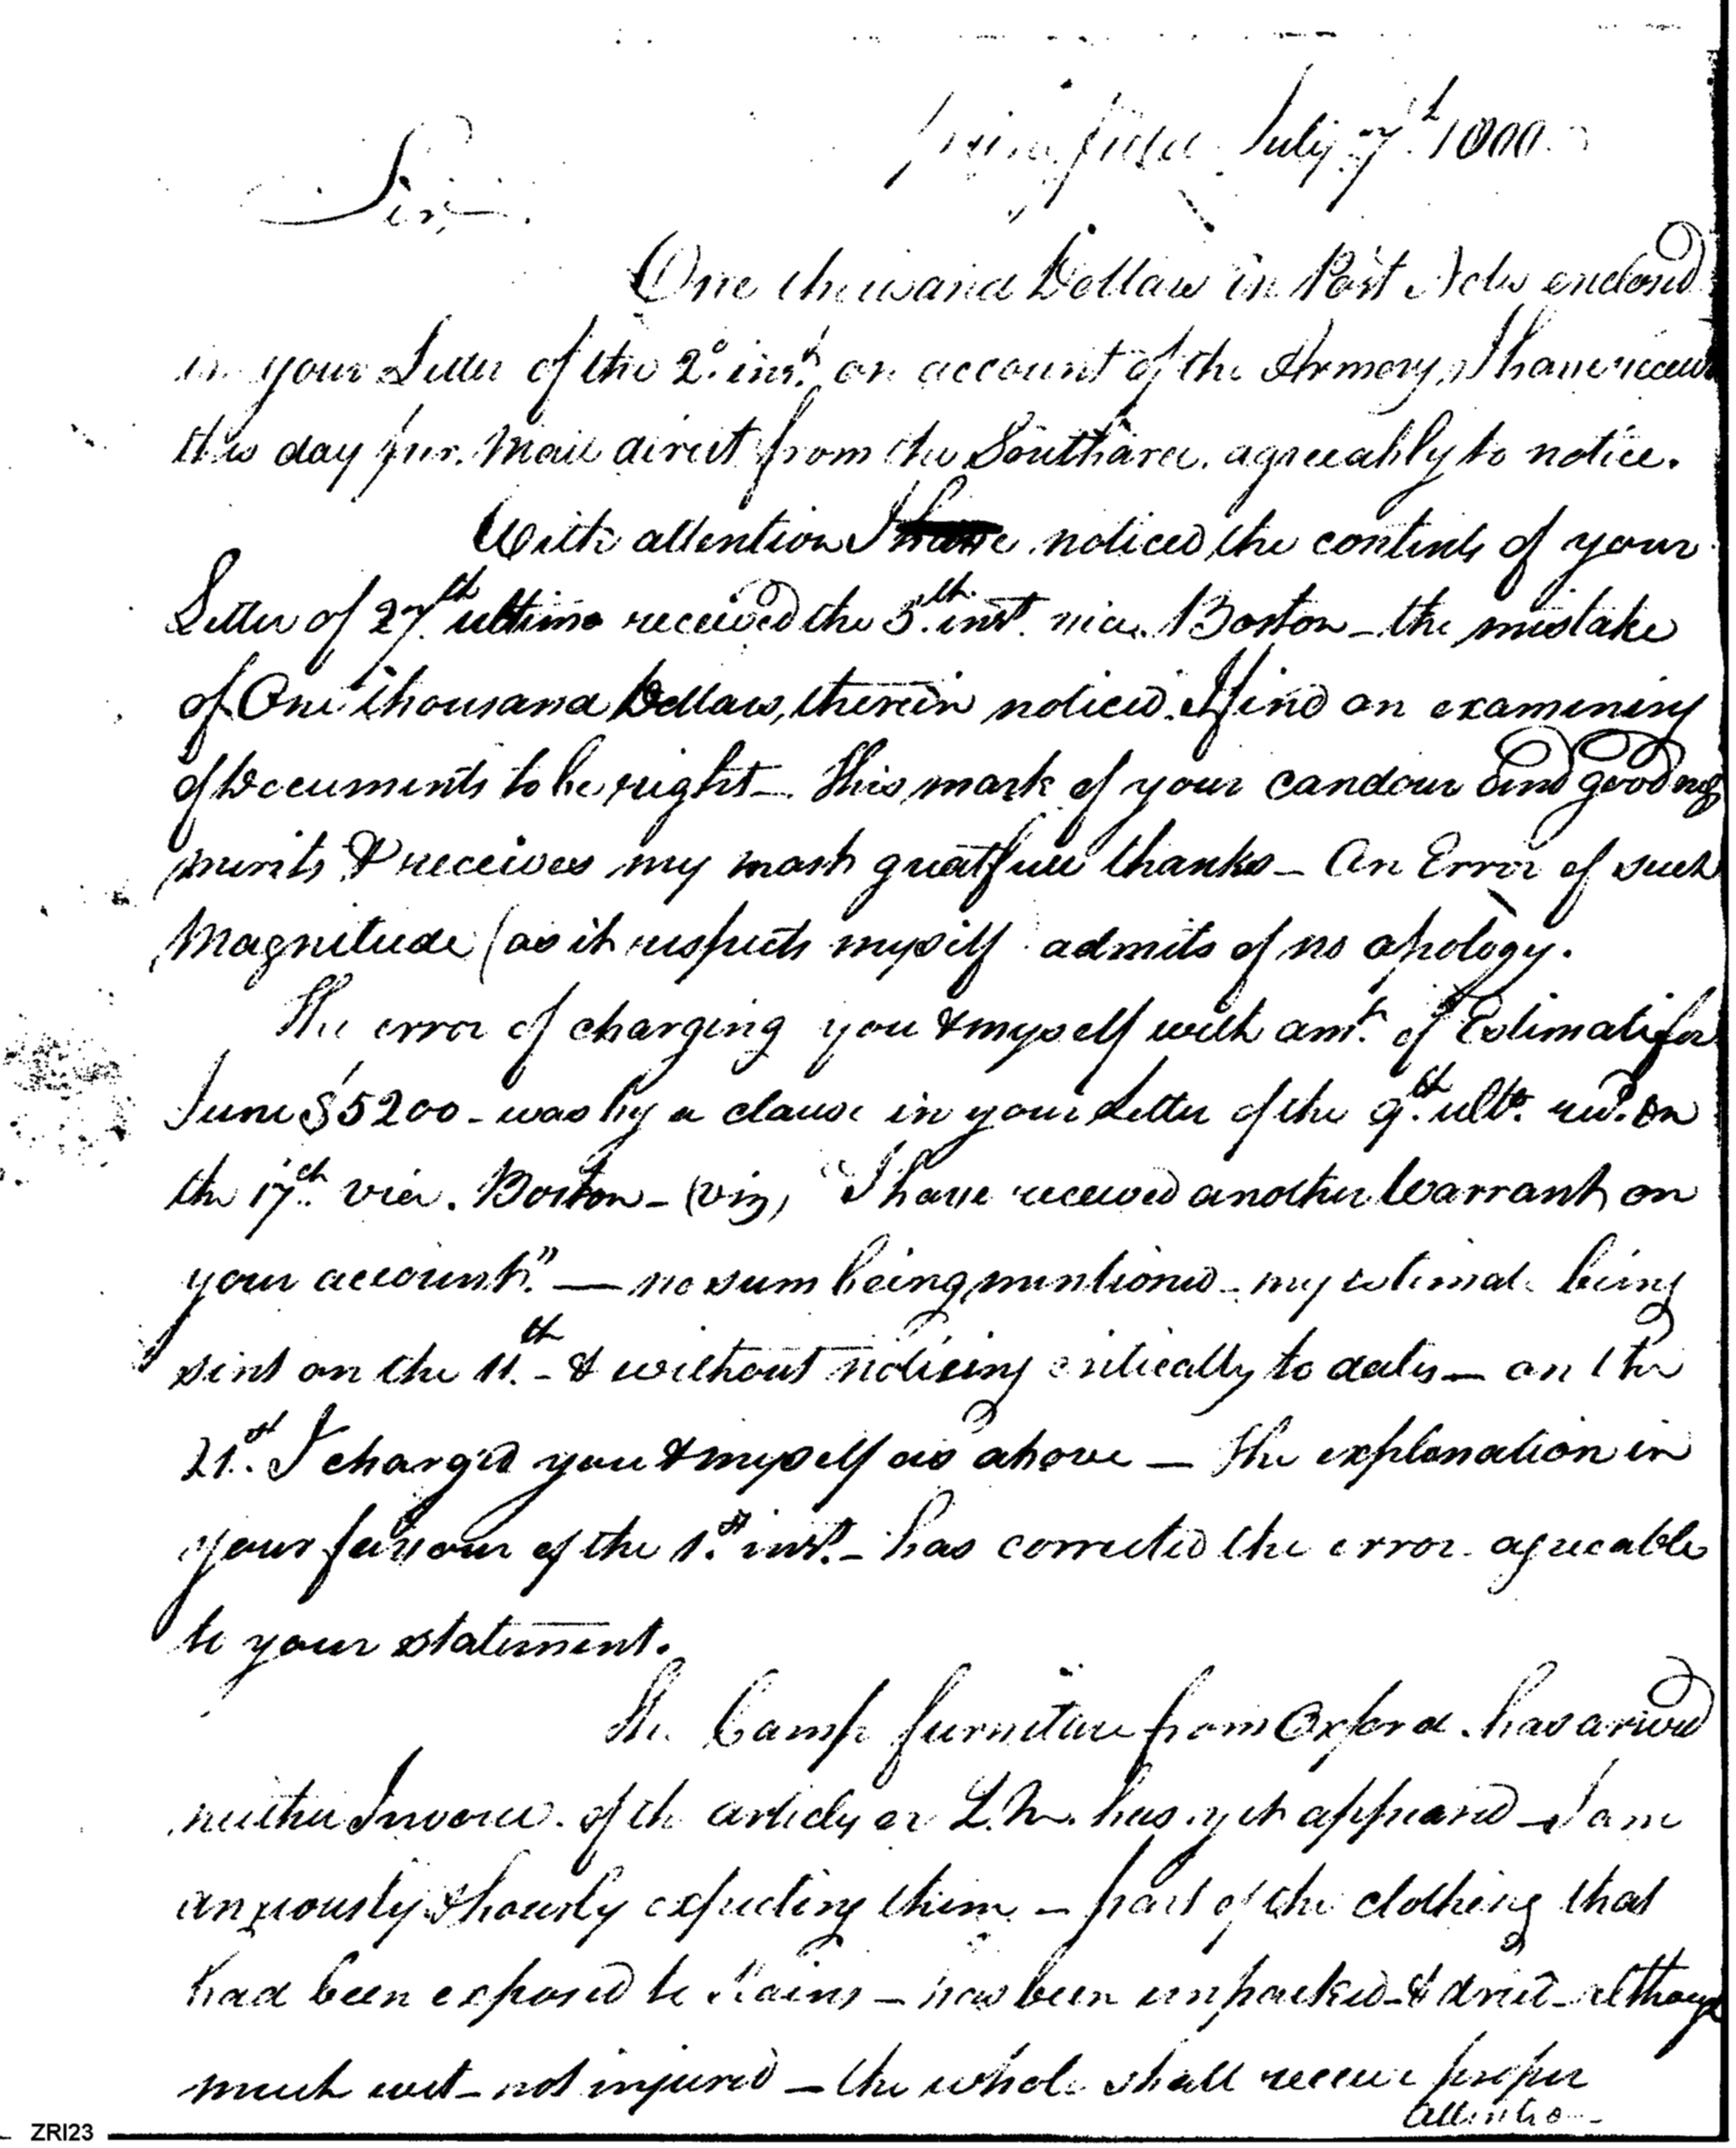 Springfield July 7th 1800
Sir,
One thousand Dollars in Post Notes enclosed
in your Letter of the 2d. inst. on account of the Armory, I have received
this day per. Mail direct from the Southard. agreeably to notice.
With attention I noticed the contents of your
Letter of 27th. ultimo received the 5th. inst. via. Boston - the mistake
of One thousand Dollars, therein noticed. I find on examining
of Documents to be right - This mark of your candour and goodness
merits & receives my most greatfull thanks - An Error of such
Magnitude (as it respects myself admits of no apology.
The error of charging you & myself with amt. of Estimate for
June $5200 - was by a clause in your Letter of the 9th. ulto. recd. on
the 17th. via. Boston - (viz) "I have received another Warrant on
your account." — no sum being mentioned - my estimate being
sent on the 11th. - & without noticing critically to dates — on the
21st. I charged you & myself as above — The explanation in
your favour of the 1st. inst. - has corrected the error agreeable
to your statement.
The Camp furniture from Oxford. has arived
neither Invoice. of the articles or L.M. has yet appeared - I am
anxiously & hourly expecting them - part of the clothing that
had been exposed to Rains - has been unpacked - & dried - although
much wet - not injured - the whole shall receive proper
attention
ZRI23